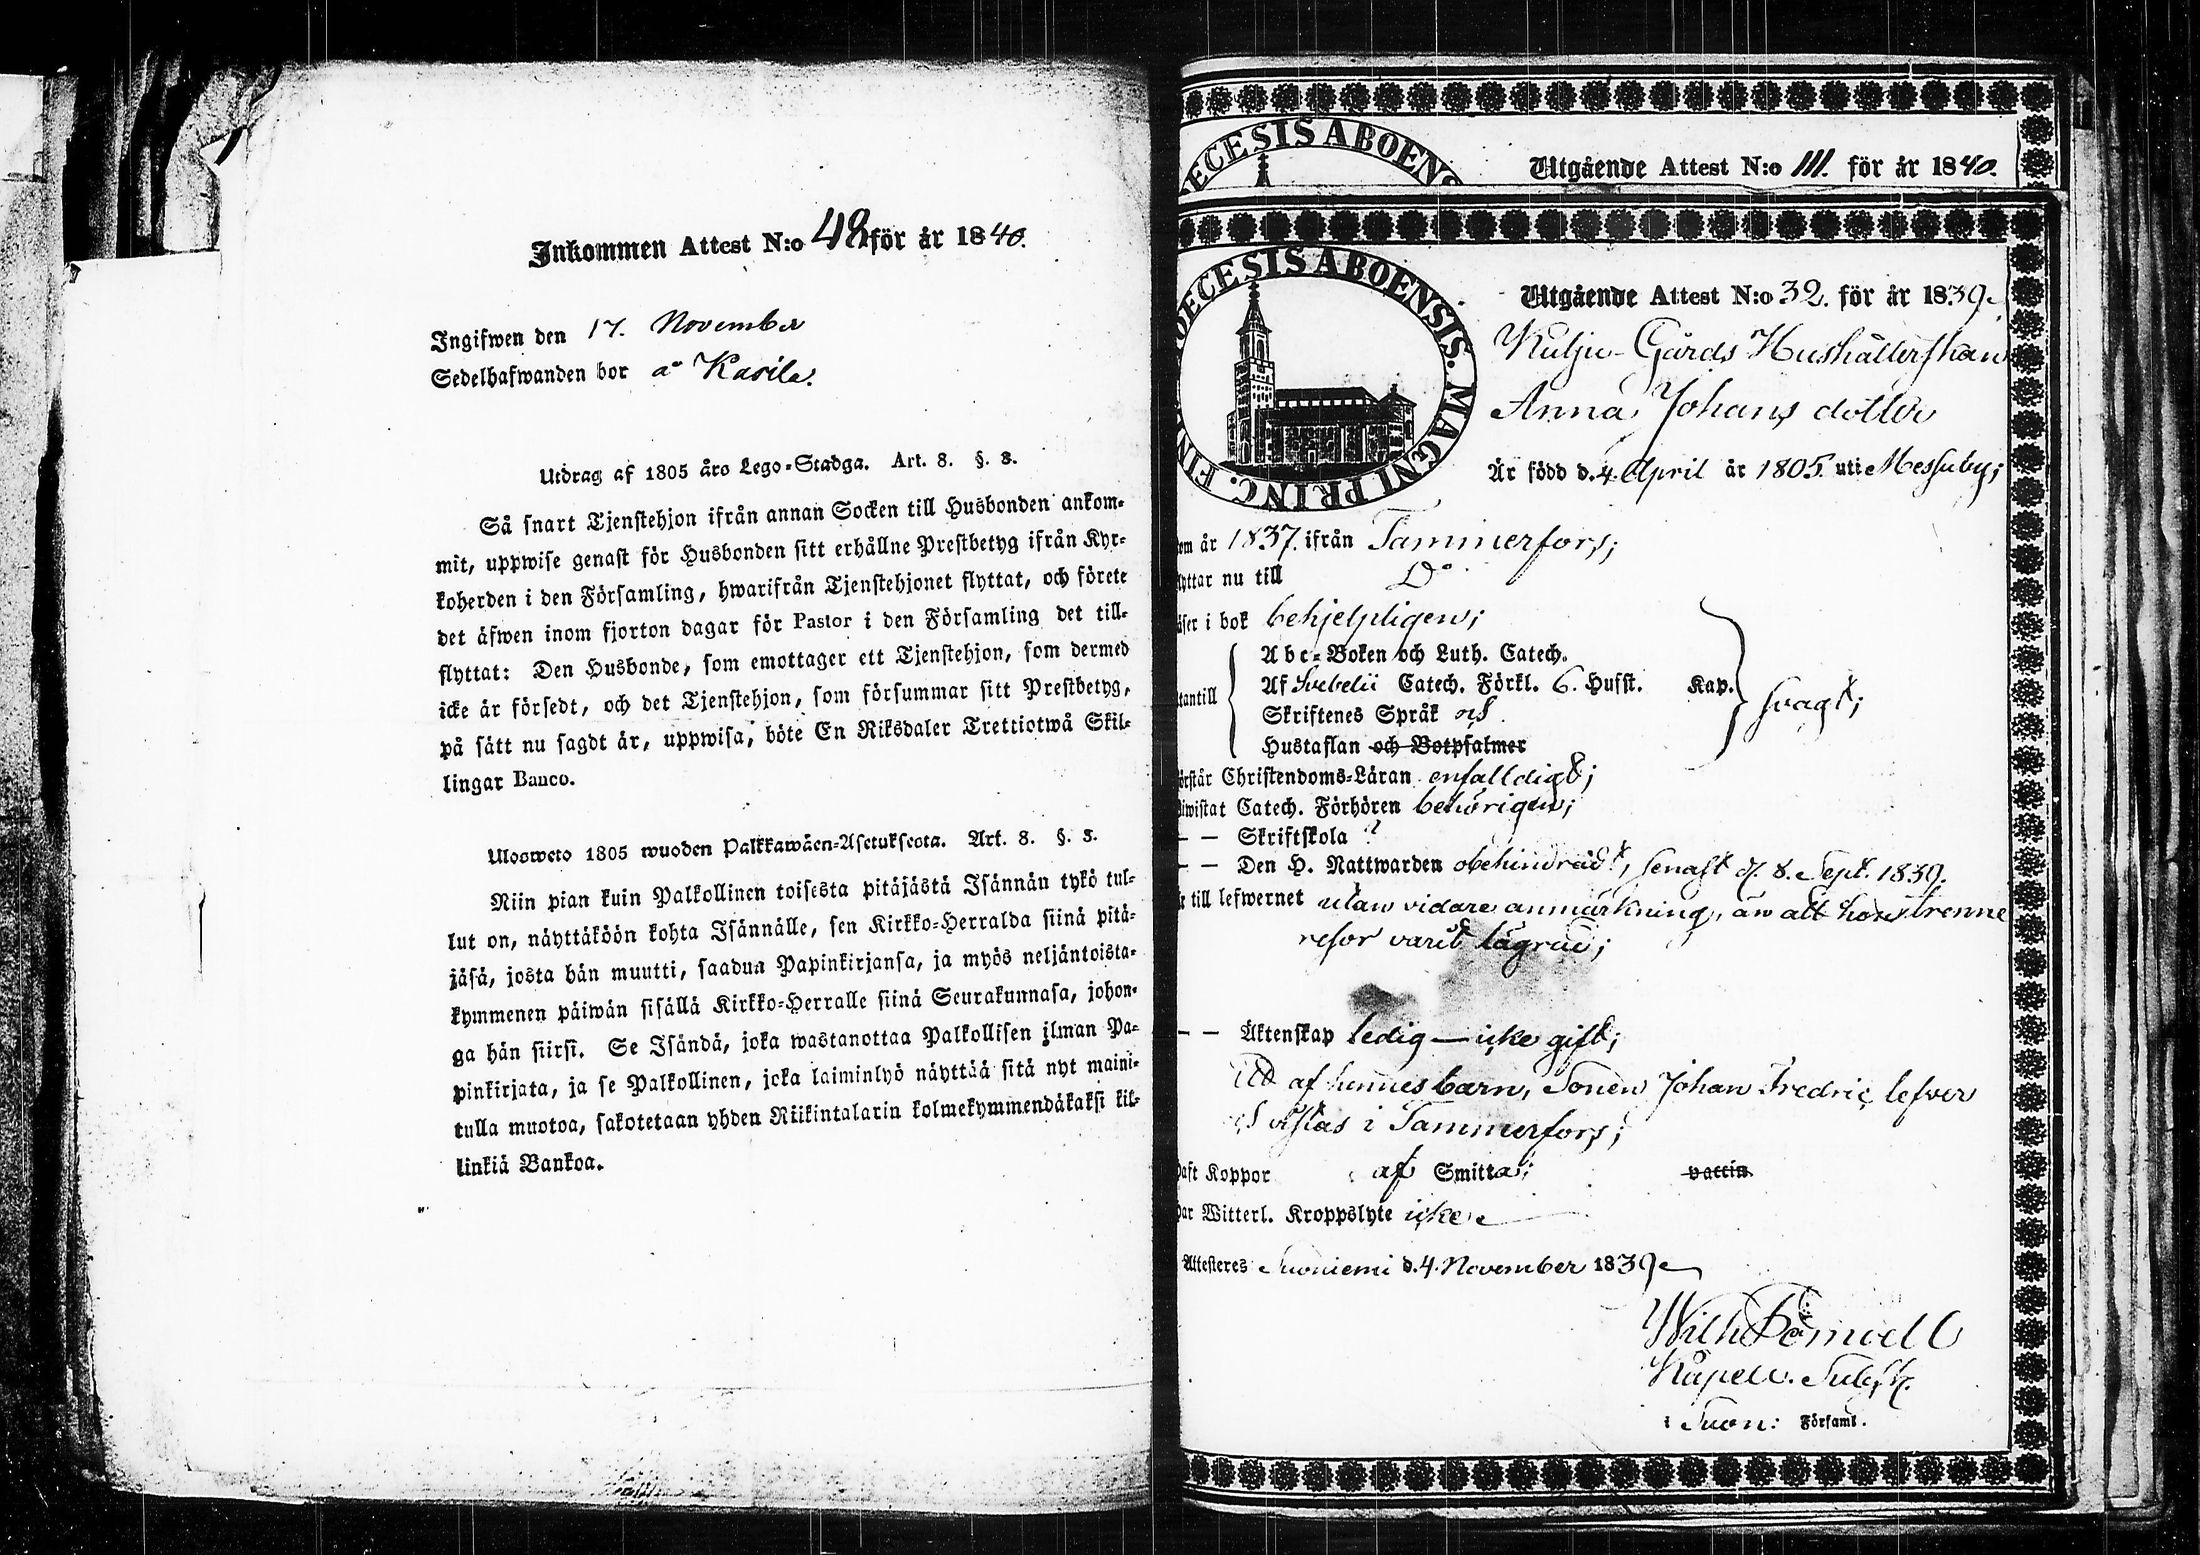 Inkommen Attest N:o 48 för år 1840.
Ingifwen den 17. November
Sedelhafwanden bor å Kasila.
Utdrag af 1805 års Lego-Stadga. Art. 8. §. 3.
Så snart Tjenstehjon ifrån annan Socken till Husbonden ankom-
mit, uppwise genast för Husbonden sitt erhållne Prestbetyg ifrån Kyr-
koherden i den Församling, hwarifrån Tjenstehjonet flyttat, och förete
det äfwen inom fjorton dagar för Pastor i den Församling det till-
flyttat: Den Husbonde, som emottager ett Tjenstehjon, som dermed
icke är försedt, och det Tjenstehjon, som försummar sitt Prestbetyg,
på sätt nu sagdt är, uppwisa, böte En Riksdaler Trettiotwå Skil-
lingar Banco.
Ulosweto 1805 wuoden Palkkawäen-Asetuksesta. Art. 8. §. 3.
Niin pian kuin Palkollinen toisesta pitäjästä Isännän tykö tul-
lut on, näyttäköön kohta Isännälle, sen Kirkko-Herralda siinä pitä-
jäsä, josta hän muutti, saadun Papinkirjansa, ja myös neljäntoista-
kymmenen päiwän sisällä Kirkko-Herralle siinä Seurakunnasa, johon-
ga hän siirsi. Se Isändä, joka wastanottaa Palkollisen ilman Pa-
pinkirjata, ja se Palkollinen, joka laiminlyö näyttää sitä nyt maini-
tulla muotoa, sakotetaan yhden Riikintalarin kolmekymmendäkaksi kil-
linkiä Bankoa.
ECESIS ABOENS
Utgående Attest N:o 111. för år 1840.
OECESIS ABOENSIS. MAGNI PRINC. FIN
Utgående Attest N:o 32. för år 1839.
Kulju-Gårds Hushållerskan
Anna Johans dotter
Är född d. 4. April år 1805. uti Messuby;
om år 1837. ifrån Tammerfors;
lyttar nu till Do
äser i bok behjelpligen;
Abc-Boken och Luth. Catech.
tantill Af Svebelii Catech. Förkl. 6. Hufst. Kap. svagt;
Skriftenes Språk och
Hustaflan och Botpsalmer
örstår Christendoms-Läran enfalldigt;
iwistat Catech. Förhören behörigen;
— — Skriftskola ?
— — Den H. Nattwarden obehindradt, senast d. 8. Sept. 1839.
r till lefwernet utan vidare anmärkning, än att hon trenne
resor varit lägrad;
— — Äktenskap ledig — icke gift;
af hennes barn, Sonen Johan Fredric lefver
och vistas i Tammerfors;
haft Koppor af Smitta; vaccin.
har Witterl. Kroppslyte icke
Attesteres Suoniemi d. 4. November 1839
Wilh
Kapell. Subst.
i Suon: Församl.